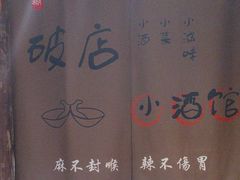 破店
小酒
小菜
小滋味
小酒馆
麻不封喉
辣不傷胃